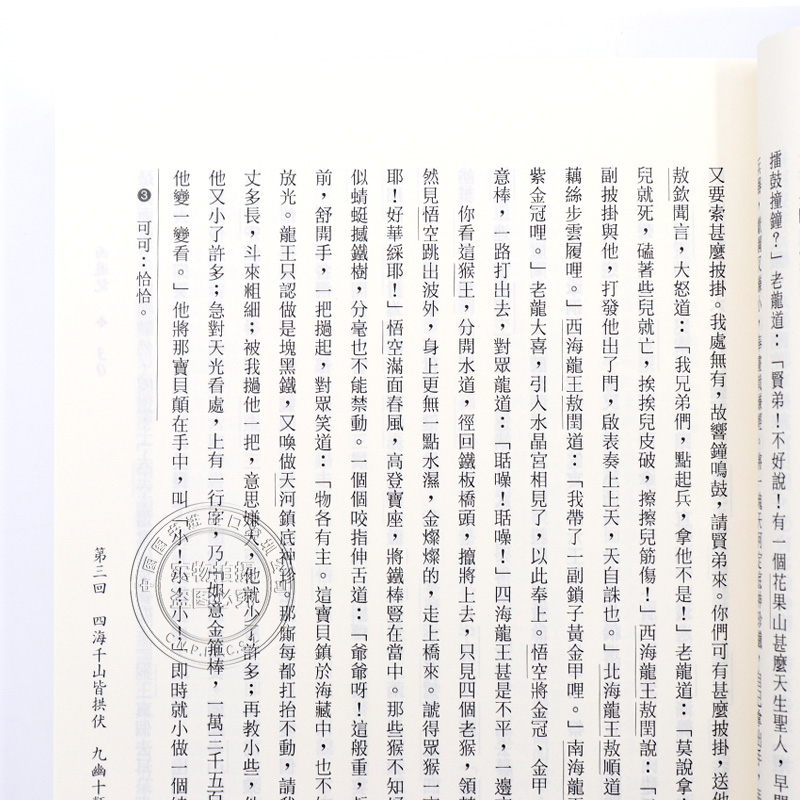 擂鼓撞鐘?」老龍道:「賢弟!不好說!有一個花果山甚麼天生聖人,早
又要索甚麼披掛。我處無有,故響鐘鳴鼓,請賢弟來。你們可有甚麼披掛,送他
敖欽聞言,大怒道:「我兄弟們,點起兵,拿他不是!」老龍道:「莫說拿
兒就死,磕著些兒就亡,挨挨兒皮破,擦擦兒筋傷!」西海龍王敖閏說:「
副披掛與他,打發他出了門,啟表奏上上天,天自誅也。」北海龍王敖順道
藕絲步雲履哩。」西海龍王敖閏道:「我帶了一副鎖子黃金甲哩。」南海龍
紫金冠哩。」老龍大喜,引入水晶宮相見了,以此奉上。悟空將金冠、金甲
意棒,一路打出去,對眾龍道:「聒噪!聒噪!」四海龍王甚是不平,一邊
你看這猴王,分開水道,徑回鐵板橋頭,攛將上去,只見四個老猴,領
然見悟空跳出波外,身上更無一點水濕,金燦燦的,走上橋來。諕得眾猴一
耶!好華綵耶!」悟空滿面春風,高登寶座,將鐵棒豎在當中。那些猴不知好
似蜻蜓撼鐵樹,分毫也不能禁動。一個個咬指伸舌道:「爺爺呀!這般重,
前,舒開手,一把撾起,對眾笑道:「物各有主。這寶貝鎮於海藏中,也不
放光。龍王只認做是塊黑鐵,又喚做天河鎮底神珍。那廝每都扛抬不動,請我
丈多長,斗來粗細;被我撾他一把,意思嫌大,他就小了許多;再教小些,他
他又小了許多;急對天光看處,上有一行字,乃『如意金箍棒,一萬三千五百
他變一變看。」他將那寶貝顛在手中,叫:「小!小!小!」即時就小做一個
❸ 可可:恰恰。
第三回 四海千山皆拱伏 九幽十
实物拍摄
盗图必究